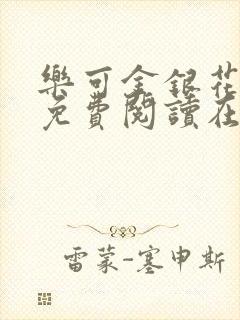 樂可金銀花
免費閱讀在
雷蒙-塞申斯